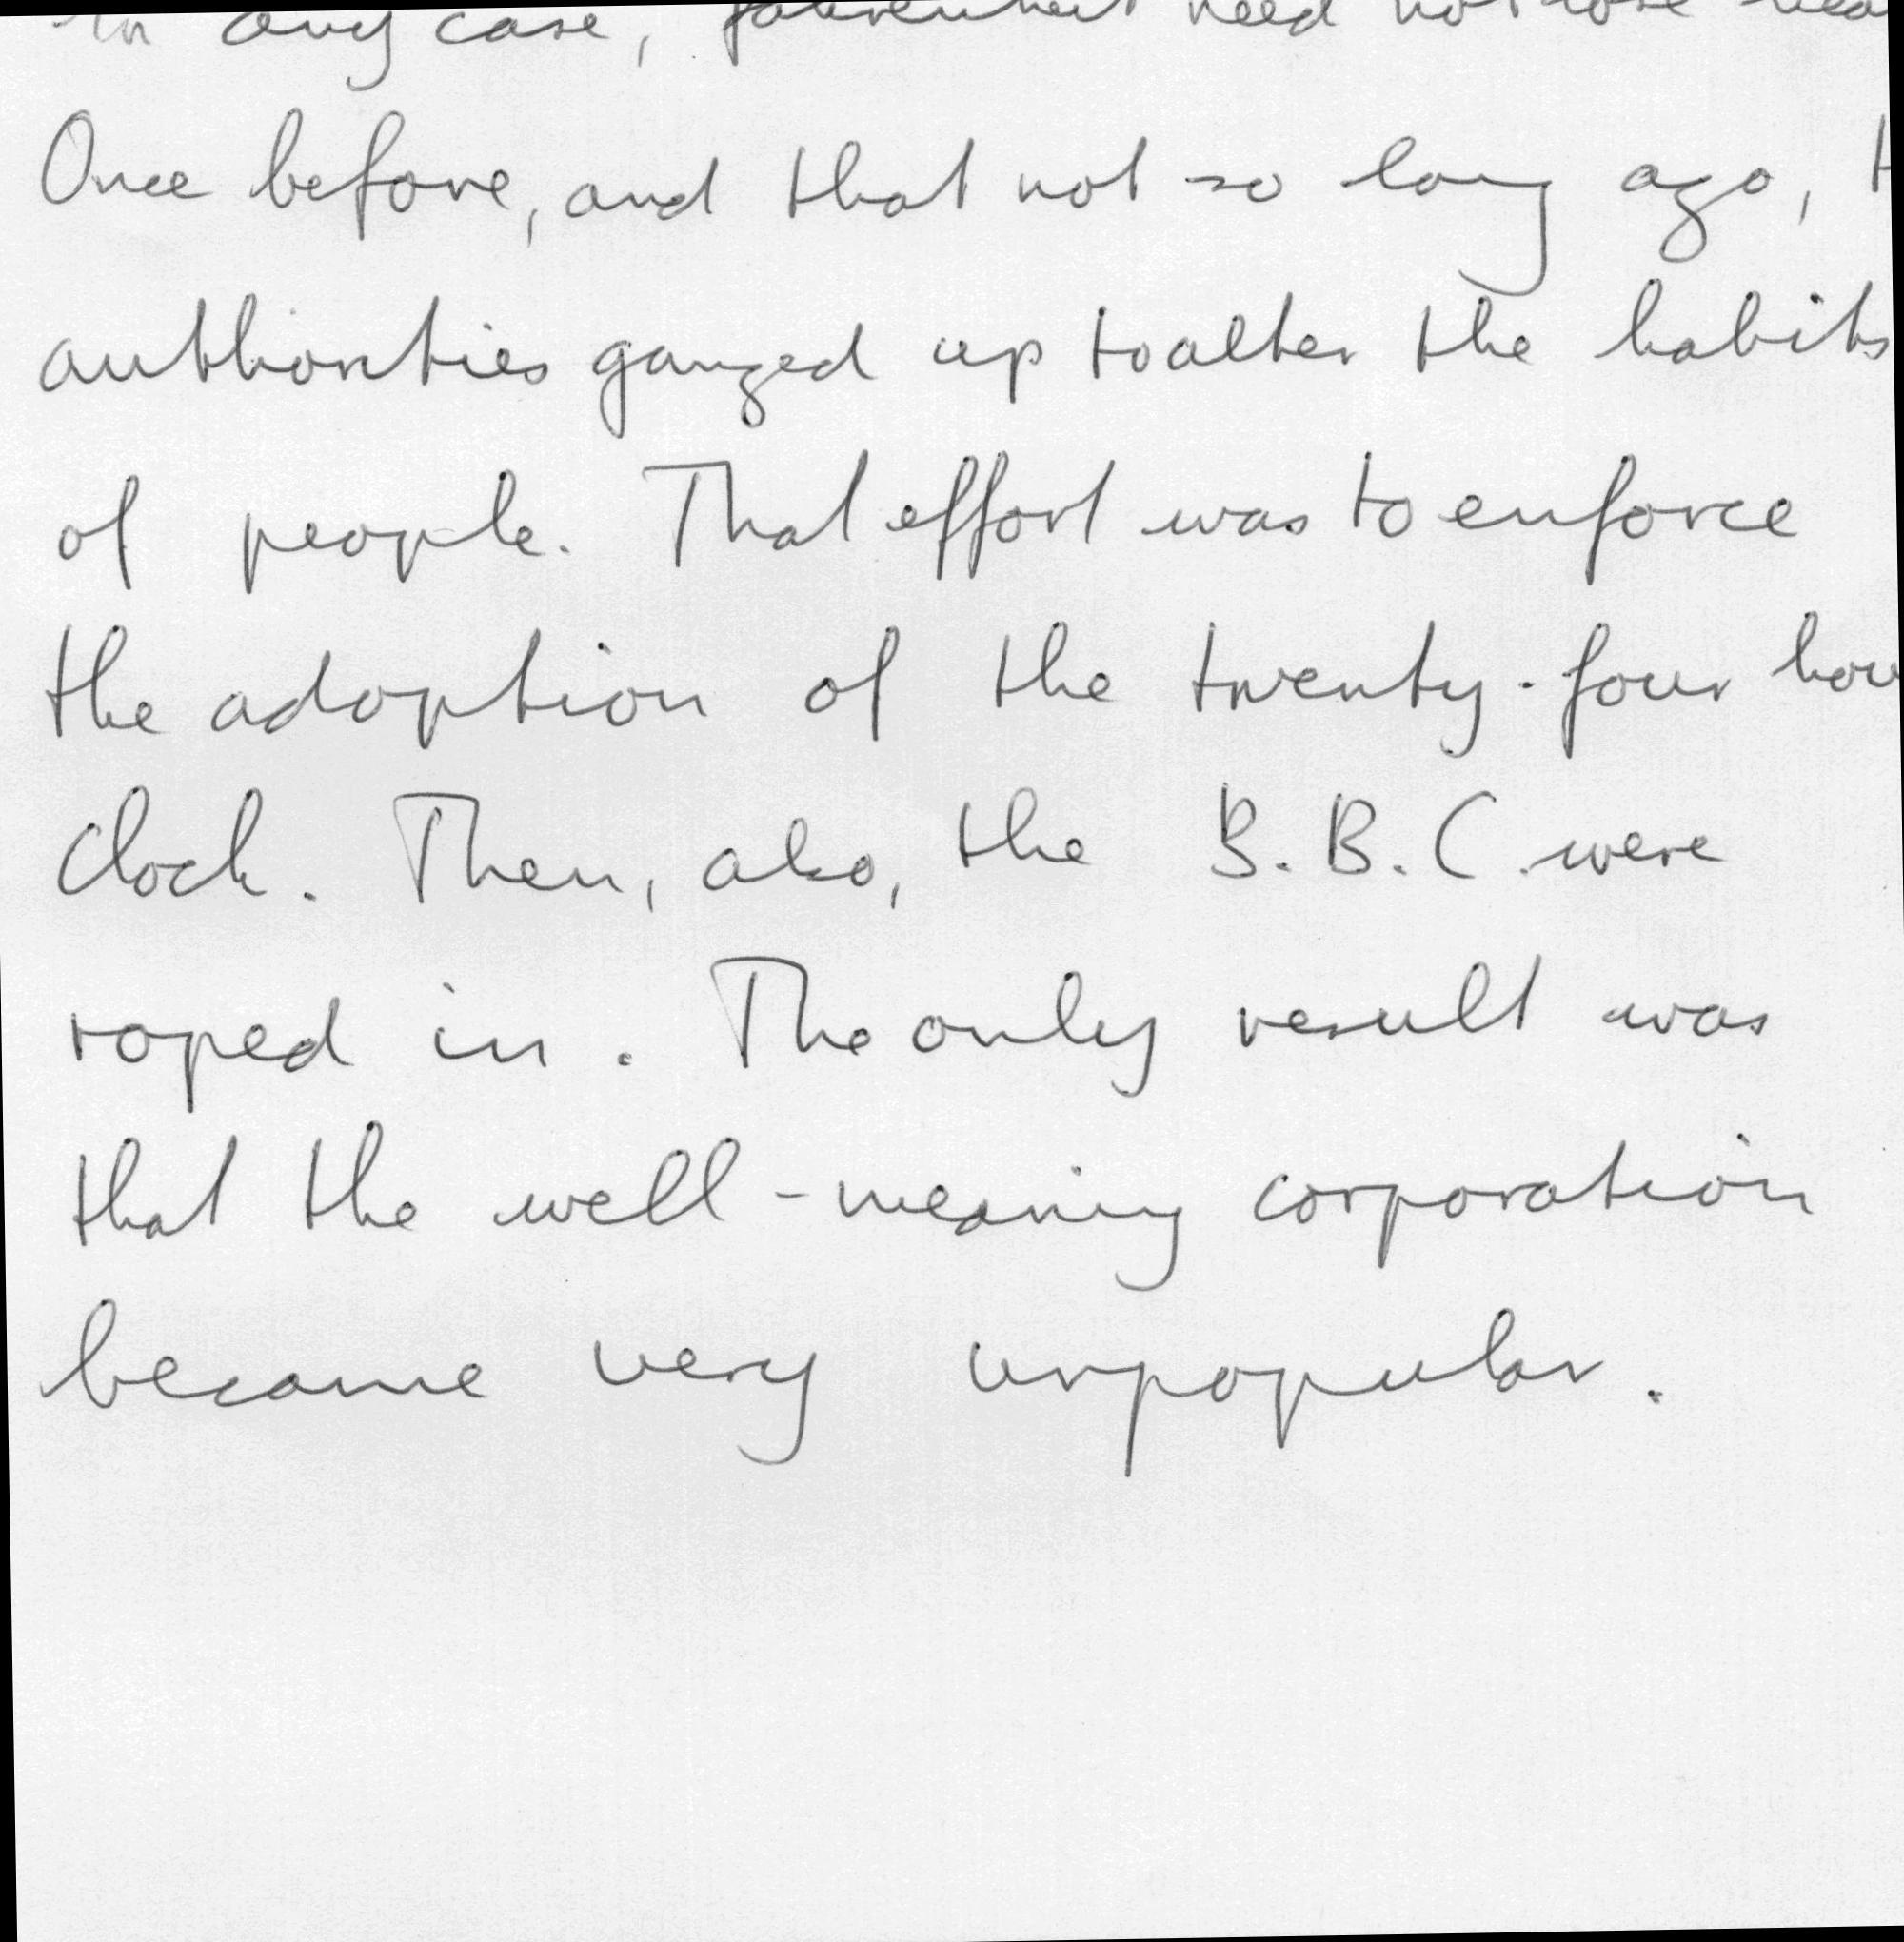 in any case, Fahrenheit need not lose
Once before, and that not so long ago,
authorities ganged up to alter the habits
of people. That effort was to enforce
the adoption of the twenty-four hou
clock. Then, also, the B.B.C. were
roped in. The only result was
that the well-meaning corporation
became very unpopular.